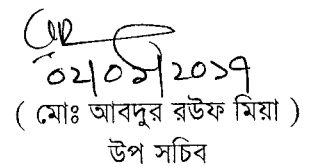 ০২/০১/২০১৭
( মোঃ আবদুর রউফ মিয়া )
উপ সচিব